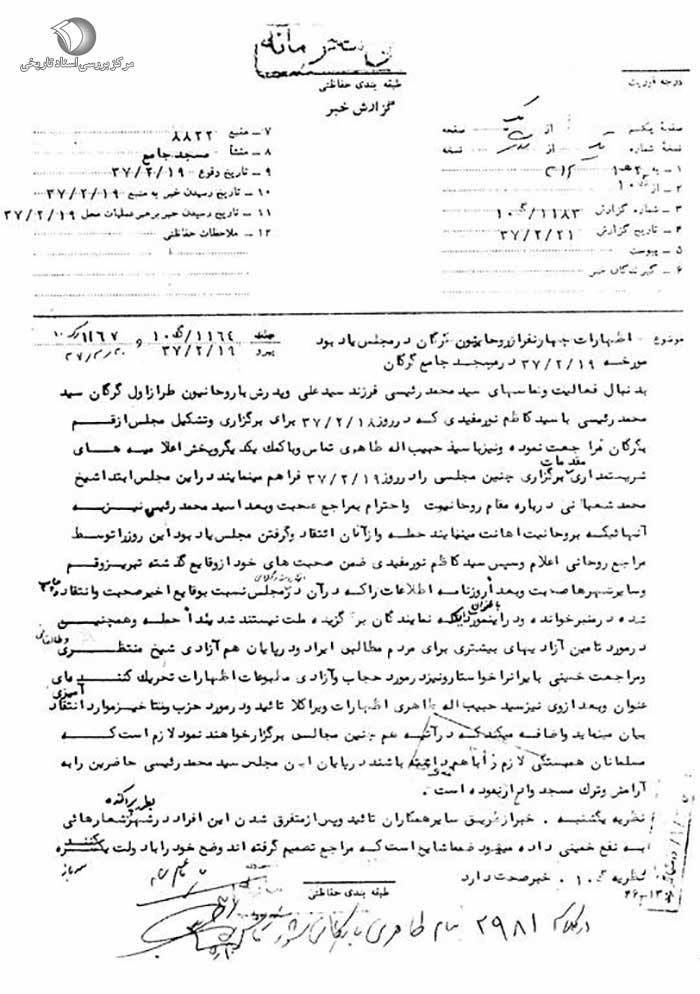 مرکز بررسی اسناد تاریخی
درجه فوریت
طبقه بندی حفاظتی
گزارش خبر
صفحه یکم از یک صفحه
نسخه شماره یک از نسخه
۱ ـ به
۲ ـ از
۳ ـ شماره گزارش ۱۱۸۳/
۴ ـ تاریخ گزارش ۳۷/۲/۲۱
۵ ـ پیوست
۶ ـ گیرندگان خبر
۷ ـ منبع ۸۸۲۲
۸ ـ منشأ مسجد جامع
۹ ـ تاریخ وقوع ۳۷/۲/۱۹
۱۰ ـ تاریخ رسیدن خبر به منبع ۳۷/۲/۱۹
۱۱ ـ تاریخ رسیدن خبر برهبر عملیات محل ۳۷/۲/۱۹
۱۲ ـ ملاحظات حفاظتی
موضوع اظهارات چهار نفر از روحانیون گرگان در مجلس یاد بود
مورخه ۳۷/۲/۱۹ در مسجد جامع گرگان
پیرو ۳۷/۲/۱۹
بدنبال فعالیت وتماسهای سید محمد رئیسی فرزند سیدعلی ویدرش باروحانیون طراز اول گرگان سید
محمد رئیسی با سید کاظم نورمفیدی که در روز ۳۷/۲/۱۸ برای برگزاری وتشکیل مجلس از قم
بگرگان مراجعت نموده ونیز با سید حبیب اله طاهری تماس وباکمک یکدیگر وپخش اعلامیه های
شریعتمداری مقدمات برگزاری چنین مجلسی را در روز ۳۷/۲/۱۹ فراهم مینمایند در این مجلس ابتدا شیخ
محمد شعبانی درباره مقام روحانیت واحترام بمراجع صحبت وبعدا سید محمد رئیسی نیز به
آنهائیکه بروحانیت اهانت مینمایند حمله وازآنان انتقاد وگرفتن مجلس یاد بود این روز را توسط
مراجع روحانی اعلام وسپس سید کاظم نورمفیدی ضمن صحبت های خود از وقایع گذشته تبریز وقم
وسایر شهرها صحبت وبعدا روزنامه اطلاعات را که در آن در مجلس نسبت بوقایع اخیر صحبت وانتقاد
شده در منبر خوانده ودر اینمورد باینکه نمایندگان برگزیده ملت نیستند شدیدا حمله وهمچنین
در مورد تامین آزادیهای بیشتری برای مردم مطالبی ایراد ودر پایان هم آزادی شیخ منتظری وطالقانی
ومراجعت خمینی بایران را خواستار ونیز در مورد حجاب وآزادی مطبوعات اظهارات تحریک آمیزی
عنوان وبعد ازوی نیز سید حبیب اله طاهری اظهارات ویرا کلا تائید ودر مورد حزب رستاخیز موارد انتقاد
بیان مینماید واضافه میکند که در آتیه هم چنین مجالس برگزار خواهند نمود لازم است که
مسلمانان همبستگی لازم را باهم داشته باشند در پایان این مجلس سید محمد رئیسی حاضرین را به
آرامش وترک مسجد وادار نموده است.
نظریه یکشنبه . خبر از طریق سایر همکاران تائید وپس از متفرق شدن این افراد در شهر بطور پراکنده شعارهائی
به نفع خمینی داده میشود ضمنا شایع است که مراجع تصمیم گرفته اند وضع خود را با دولت یکسره کنند
نظریه ۱۰ . خبر صحت دارد
طبقه بندی حفاظتی
۲۹۸۱ بنام طاهری بایگانی شود